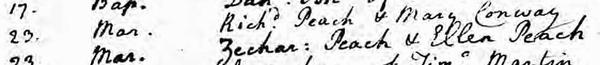 17. Bap.
23. Mar. Rich.d Peach & Mary Conway
23. Mar. Zechar: Peach & Ellen Peach
23. Mar. Martin